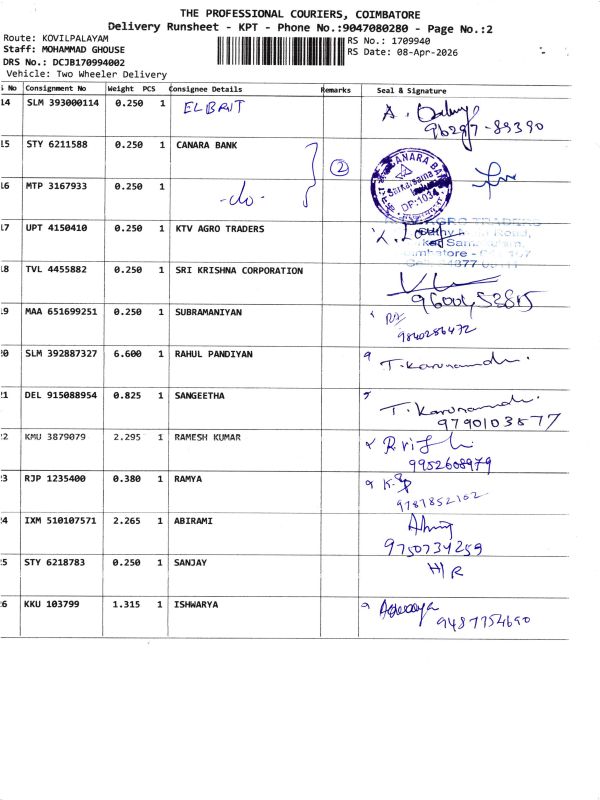 THE PROFESSIONAL COURIERS, COIMBATORE
Delivery Runsheet - KPT - Phone No.:9047080280 - Page No.:2
Route: KOVILPALAYAM
Staff: MOHAMMAD GHOUSE
DRS No.: DCJB170994002
Vehicle: Two Wheeler Delivery
RS No.: 1709940
RS Date: 08-Apr-2026
No Consignment No Weight PCS Consignee Details Remarks Seal & Signature
14 SLM 393000114 0.250 1 ELBRIT A.
96297-89390
15 STY 6211588 0.250 1 CANARA BANK 2 CANARA BANK
DP:1034
16 MTP 3167933 0.250 1 -do-
17 UPT 4150410 0.250 1 KTV AGRO TRADERS AGRO TRADERS
18 TVL 4455882 0.250 1 SRI KRISHNA CORPORATION
9600453815
19 MAA 651699251 0.250 1 SUBRAMANIYAN
9840286472
20 SLM 392887327 6.600 1 RAHUL PANDIYAN T. Karunamdi.
21 DEL 915088954 0.825 1 SANGEETHA T. Karunamdi.
9790103877
22 KMU 3879079 2.295 1 RAMESH KUMAR
9952608979
23 RJP 1235400 0.380 1 RAMYA
9787852102
24 IXM 510107571 2.265 1 ABIRAMI
9750734259
25 STY 6218783 0.250 1 SANJAY H/R
26 KKU 103799 1.315 1 ISHWARYA
9487754690